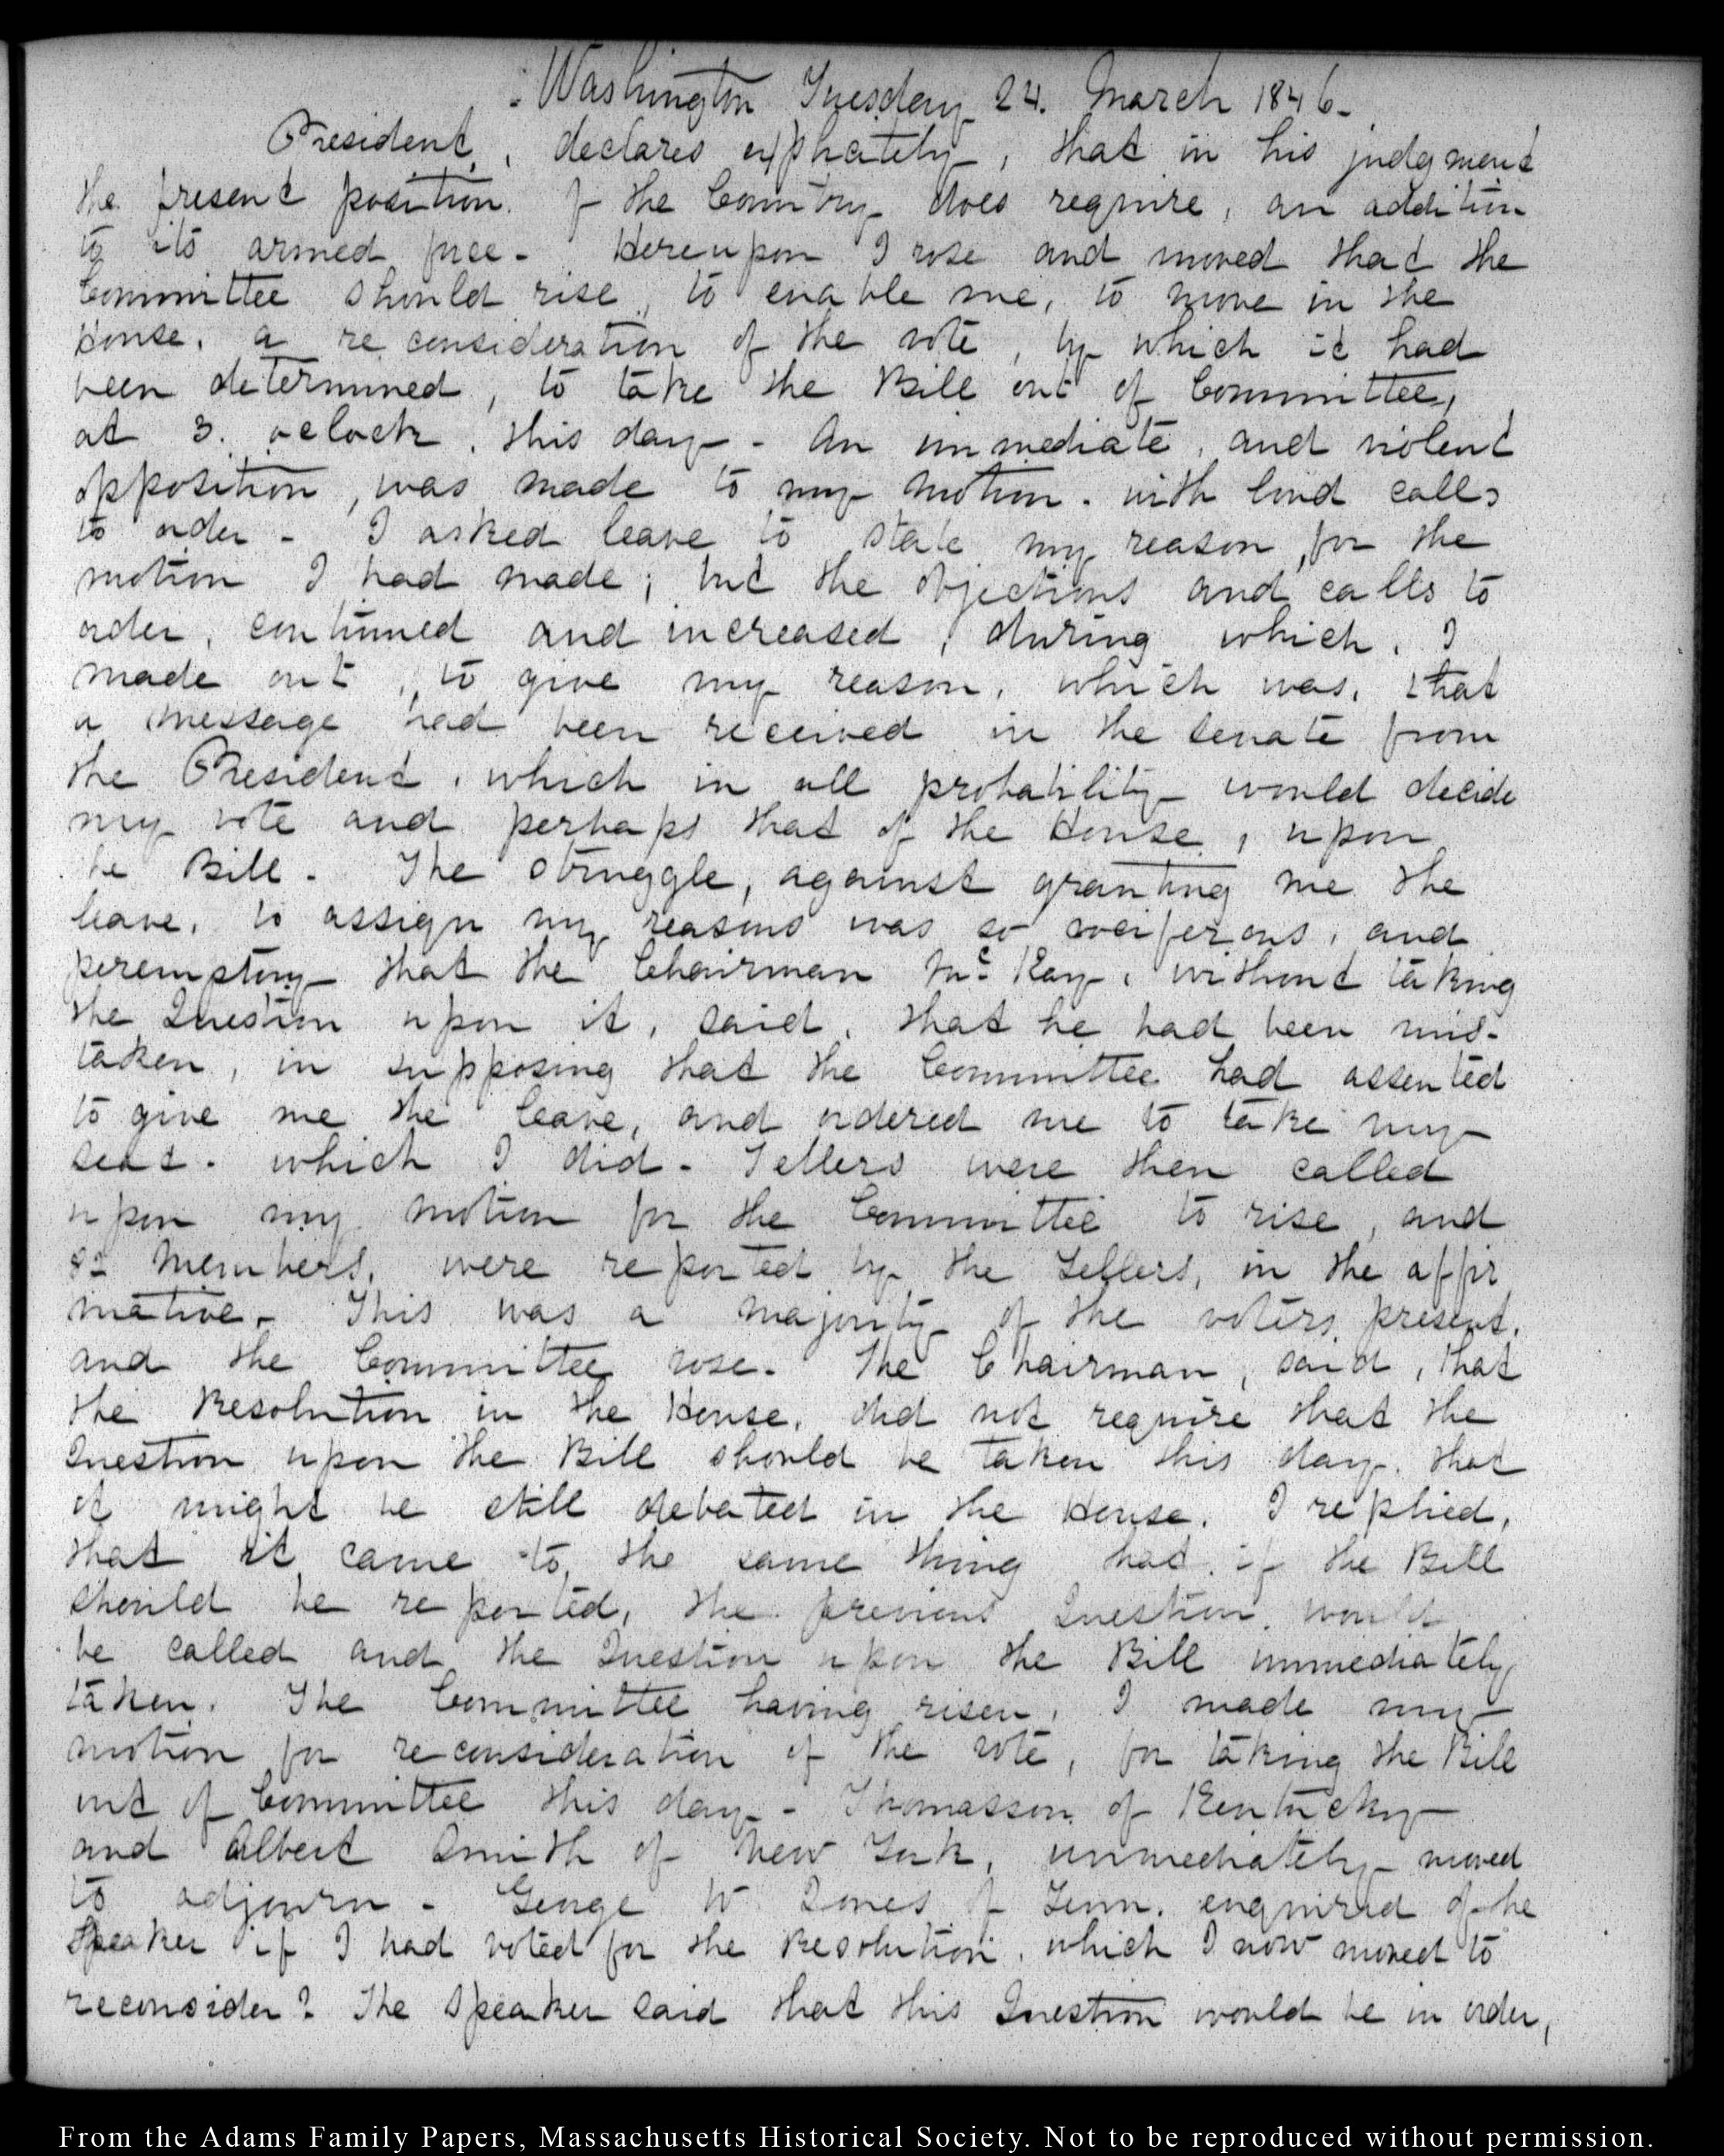 Washington Tuesday 24. March 1846-
President, declares explicitely, that in his judgment
the present position of the Country does require, an addition
to its armed force- Hereupon I rose and moved that the
Committee should rise, to enable me, to move in the
House, a reconsideration of the vote, by which it had
been determined, to take the Bill out of Committee,
at 3. oclock, this day- An immediate, and violent
opposition, was made to my motion. with loud calls
to order- I asked leave to state my reason, for the
motion I had made; but the objections and calls to
order, continued and increased, during which, I
made out, to give my reason, which was, that
a message had been received in the Senate from
the President, which in all probability would decide
my vote and perhaps that of the House, upon
he Bill. The struggle, against granting me the
leave, to assign my reasons was so vociferous, and
peremptory that the Chairman McKay, without taking
the Question upon it, said, that he had been mis-
taken, in supposing that the Committee had assented
to give me the leave, and ordered me to take my
seat. which I did- Tellers were then called
upon my motion for the Committee to rise, and
Members, were reported by the Tellers, in the affir
mative- This was a majority of the voters present,
and the Committee rose- The Chairman, said, that
the Resolution in the House, did not require that the
Question upon the Bill should be taken this day, that
it might be still debated in the House. I replied,
that it came to, the same thing hat, if the Bill
should be reported, the previous Question would
be called and the Question upon the Bill immediately
taken. The Committee having risen, I made my
motion for reconsideration of the vote, for taking the Bill
out of Committee this day- Thomasson of Kentucky
and Albert Smith of New York, immediately moved
to adjourn- George W Jones of Tenn. enquired of the
Speaker if I had voted for the Resolution, which I now moved to
reconsider? The Speaker said that this Question would be in order,
From the Adams Family Papers, Massachusetts Historical Society. Not to be reproduced without permission.